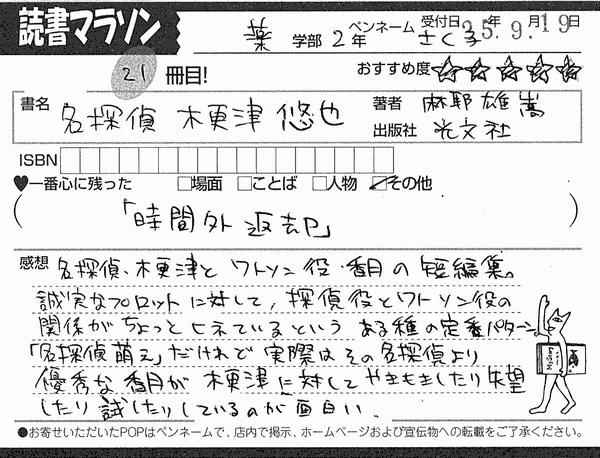 読書マラソン
薬 学部 2年 ペンネーム さく子 受付日 25年 9.月 19日
21 冊目! おすすめ度 ☆☆☆☆☆
書名 名探偵 木更津 悠也 著者 麻耶 雄嵩
出版社 光文社
ISBN
♥一番心に残った □場面 □ことば □人物 ☑その他
(「時間外返却」)
感想 名探偵・木更津とワトソン役・香月の短編集。
誠実なプロットに対して、探偵役とワトソン役の
関係がちょっとヒネているというある種の定番パターン。
「名探偵萌え」だけれど実際はその名探偵より
優秀な香月が木更津に対してやきもきしたり失望
したり試したりしているのが面白い。
●お寄せいただいたPOPはペンネームで、店内で掲示、ホームページおよび宣伝物への転載をご了承ください。